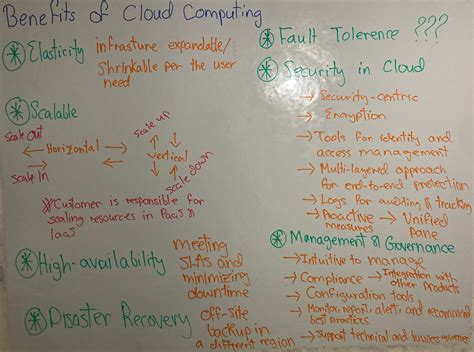 Benefits of Cloud Computing
Elasticity infrasture expandable/
Shrinkable per the user
need
Scalable
Scale out
Horizontal
Scale in
Scale up
Vertical
Scale down
*Customer is responsible for
scaling resources in PaaS &
IaaS
High-availability meeting
SLAS and
minimizing
downtime
Disaster Recovery off-site
backup in
a different region
Fault Tolerence ???
Security in Cloud
→ Security-centric
→ Encryption
→ Tools for identity and
access management
→ Multi-layered approach
for end-to-end protection
→ Logs for auditing & tracking
→ Proactive measures → Unified
Pane
Management & Governance
→ Intuitive to manage
→ Compliance → Integration with
other products
→ Configuration tools
→ Monitor, report, alert, and recommend
best practices
→ Support technical and business